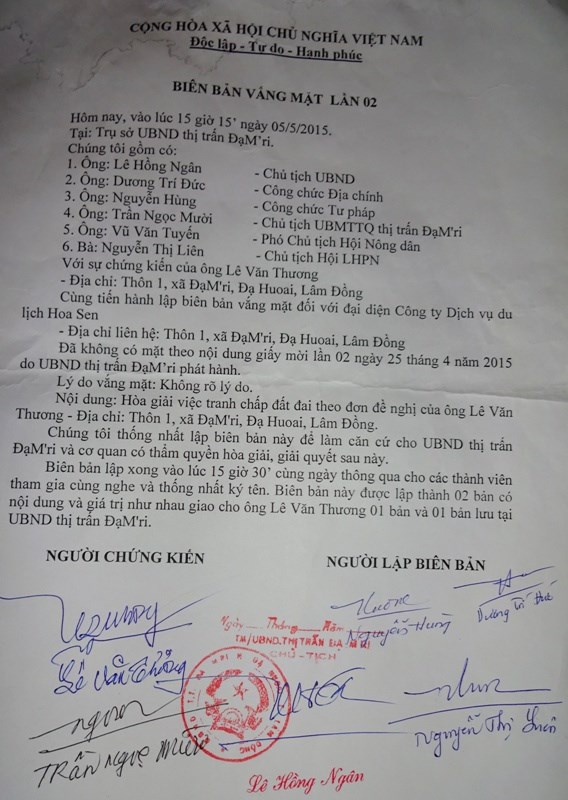 CỘNG HÒA XÃ HỘI CHỦ NGHĨA VIỆT NAM
Độc lập - Tự do - Hạnh phúc
BIÊN BẢN VẮNG MẶT LẦN 02
Hôm nay, vào lúc 15 giờ 15' ngày 05/5/2015.
Tại: Trụ sở UBND thị trấn ĐạM'ri.
Chúng tôi gồm có:
1. Ông: Lê Hồng Ngân - Chủ tịch UBND
2. Ông: Dương Trí Đức - Công chức Địa chính
3. Ông: Nguyễn Hùng - Công chức Tư pháp
4. Ông: Trần Ngọc Mười - Chủ tịch UBMTTQ thị trấn ĐạM'ri
5. Ông: Vũ Văn Tuyến - Phó Chủ tịch Hội Nông dân
6. Bà: Nguyễn Thị Liên - Chủ tịch Hội LHPN
Với sự chứng kiến của ông Lê Văn Thương
- Địa chỉ: Thôn 1, xã ĐạM'ri, Đạ Huoai, Lâm Đồng
Cùng tiến hành lập biên bản vắng mặt đối với đại diện Công ty Dịch vụ du
lịch Hoa Sen
- Địa chỉ liên hệ: Thôn 1, xã ĐạM'ri, Đạ Huoai, Lâm Đồng
Đã không có mặt theo nội dung giấy mời lần 02 ngày 25 tháng 4 năm 2015
do UBND thị trấn ĐạM'ri phát hành.
Lý do vắng mặt: Không rõ lý do.
Nội dung: Hòa giải việc tranh chấp đất đai theo đơn đề nghị của ông Lê Văn
Thương - Địa chỉ: Thôn 1, xã ĐạM'ri, Đạ Huoai, Lâm Đồng.
Chúng tôi thống nhất lập biên bản này để làm căn cứ cho UBND thị trấn
ĐạM'ri và cơ quan có thẩm quyền hòa giải, giải quyết sau này.
Biên bản lập xong vào lúc 15 giờ 30' cùng ngày thông qua cho các thành viên
tham gia cùng nghe và thống nhất ký tên. Biên bản này được lập thành 02 bản có
nội dung và giá trị như nhau giao cho ông Lê Văn Thương 01 bản và 01 bản lưu tại
UBND thị trấn ĐạM'ri.
NGƯỜI CHỨNG KIẾN
NGƯỜI LẬP BIÊN BẢN
Dương Trí Đức
Nguyễn Hùng
Ngày Tháng Năm
TM/UBND.THỊ TRẤN ĐẠ M'RI
CHỦ-TỊCH
Lê Văn Thương
Nguyễn Thị Liên
Trần Ngọc Mười
Lê Hồng Ngân